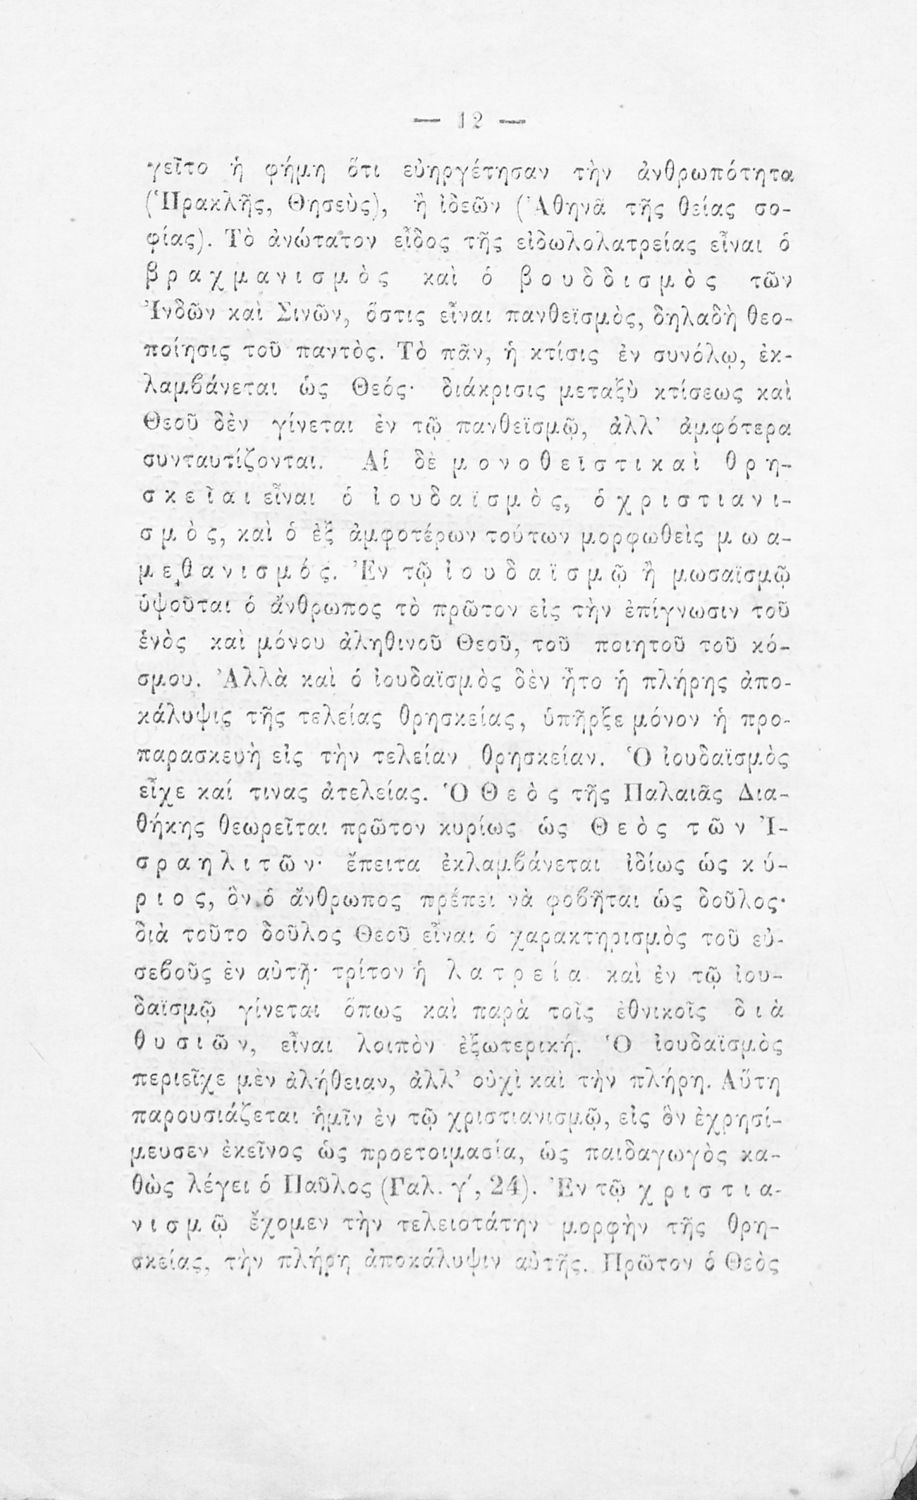 — 12 —
γεῖτο ἡ φήμη ὅτι εὐηργέτησαν τὴν ἀνθρωπότητα
(Ἡρακλῆς, Θησεὺς), ἢ ἰδεῶν (Ἀθηνᾶ τῆς θείας σο-
φίας). Τὸ ἀνώτατον εἶδος τῆς εἰδωλολατρείας εἶναι ὁ
βραχμανισμὸς καὶ ὁ βουδδισμὸς τῶν
Ἰνδῶν καὶ Σινῶν, ὅστις εἶναι πανθεϊσμὸς, δηλαδὴ θεο-
ποίησις τοῦ παντὸς. Τὸ πᾶν, ἡ κτίσις ἐν συνόλῳ, ἐκ-
λαμβάνεται ὡς Θεός· διάκρισις μεταξὺ κτίσεως καὶ
Θεοῦ δὲν γίνεται ἐν τῷ πανθεϊσμῷ, ἀλλ' ἀμφότερα
συνταυτίζονται. Αἱ δὲ μονοθεϊστικαὶ θρη-
σκεῖαι εἶναι ὁ ἰουδαϊσμὸς, ὁ χριστιανι-
σμὸς, καὶ ὁ ἐξ ἀμφοτέρων τούτων μορφωθεὶς μωα-
μεθανισμός. Ἐν τῷ ἰουδαϊσμῷ ἢ μωσαϊσμῷ
ὑψοῦται ὁ ἄνθρωπος τὸ πρῶτον εἰς τὴν ἐπίγνωσιν τοῦ
ἑνὸς καὶ μόνου ἀληθινοῦ Θεοῦ, τοῦ ποιητοῦ τοῦ κό-
σμου. Ἀλλὰ καὶ ὁ ἰουδαϊσμὸς δὲν ἦτο ἡ πλήρης ἀπο-
κάλυψις τῆς τελείας θρησκείας, ὑπῆρξε μόνον ἡ προ-
παρασκευὴ εἰς τὴν τελείαν θρησκείαν. Ὁ ἰουδαϊσμὸς
εἶχε καί τινας ἀτελείας. Ὁ Θεὸς τῆς Παλαιᾶς Δια-
θήκης θεωρεῖται πρῶτον κυρίως ὡς Θεὸς τῶν Ἰ-
σραηλιτῶν· ἔπειτα ἐκλαμβάνεται ἰδίως ὡς κύ-
ριος, ὃν ὁ ἄνθρωπος πρέπει νὰ φοβῆται ὡς δοῦλος·
διὰ τοῦτο δοῦλος Θεοῦ εἶναι ὁ χαρακτηρισμὸς τοῦ εὐ-
σεβοῦς ἐν αὐτῇ· τρίτον ἡ λατρεία καὶ ἐν τῷ ἰου-
δαϊσμῷ γίνεται ὅπως καὶ παρὰ τοῖς ἐθνικοῖς διὰ
θυσιῶν, εἶναι λοιπὸν ἐξωτερική. Ὁ ἰουδαϊσμὸς
περιεῖχε μὲν ἀλήθειαν, ἀλλ' οὐχὶ καὶ τὴν πλήρη. Αὕτη
παρουσιάζεται ἡμῖν ἐν τῷ χριστιανισμῷ, εἰς ὃν ἐχρησί-
μευσεν ἐκεῖνος ὡς προετοιμασία, ὡς παιδαγωγὸς κα-
θὼς λέγει ὁ Παῦλος (Γαλ. γ', 24). Ἐν τῷ χριστια-
νισμῷ ἔχομεν τὴν τελειοτάτην μορφὴν τῆς θρη-
σκείας, τὴν πλήρη ἀποκάλυψιν αὐτῆς. Πρῶτον ὁ Θεὸς